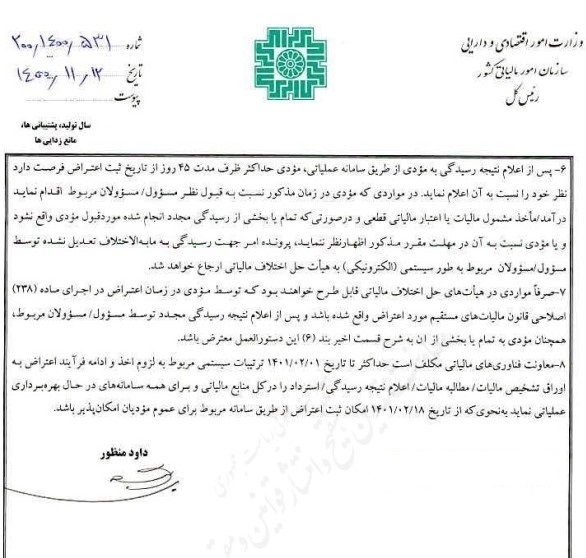 وزارت امور اقتصادی و دارایی
سازمان امور مالیاتی کشور
رئیس کل
شماره ۲۰۰/۱۴۰۰/۵۳۱
تاریخ ۱۴۰۰/۱۱/۱۲
پیوست
سال تولید، پشتیبانی ها،
مانع زدایی ها
۶- پس از اعلام نتیجه رسیدگی به مؤدی از طریق سامانه عملیاتی، مؤدی حداکثر ظرف مدت ۴۵ روز از تاریخ ثبت اعتراض فرصت دارد
نظر خود را نسبت به آن اعلام نماید. در مواردی که مؤدی در زمان مذکور نسبت به قبول نظر مسؤول/ مسؤولان مربوط اقدام نماید
درآمد/مأخذ مشمول مالیات یا اعتبار مالیاتی قطعی و درصورتی‌که تمام یا بخشی از رسیدگی مجدد انجام شده موردقبول مؤدی واقع نشود
و یا مؤدی نسبت به آن در مهلت مقرر مذکور اظهارنظر ننماید، پرونده امر جهت رسیدگی به مابه‌الاختلاف تعدیل نشده توسط
مسؤول/مسؤولان مربوط به طور سیستمی (الکترونیکی) به هیأت حل اختلاف مالیاتی ارجاع خواهد شد.
۷-صرفاً مواردی در هیأت‌های حل اختلاف مالیاتی قابل طرح خواهند بود که توسط مؤدی در زمان اعتراض در اجرای ماده (۲۳۸)
اصلاحی قانون مالیات‌های مستقیم مورد اعتراض واقع شده باشد و پس از اعلام نتیجه رسیدگی مجدد توسط مسؤول/ مسؤولان مربوط،
همچنان مؤدی به تمام یا بخشی از ان به شرح قسمت اخیر بند (۶) این دستورالعمل معترض باشد.
۸-معاونت فناوری‌های مالیاتی مکلف است حداکثر تا تاریخ ۱۴۰۱/۰۲/۰۱ ترتیبات سیستمی مربوط به لزوم اخذ و ادامه فرآیند اعتراض به
اوراق تشخیص مالیات/ مطالبه مالیات/ اعلام نتیجه رسیدگی/ استرداد را درکل منابع مالیاتی و برای همه سامانه‌های در حال بهره‌برداری
عملیاتی نماید به‌نحوی‌که از تاریخ ۱۴۰۱/۰۲/۱۸ امکان ثبت اعتراض از طریق سامانه مربوط برای عموم مؤدیان امکان‌پذیر باشد.
داود منظور